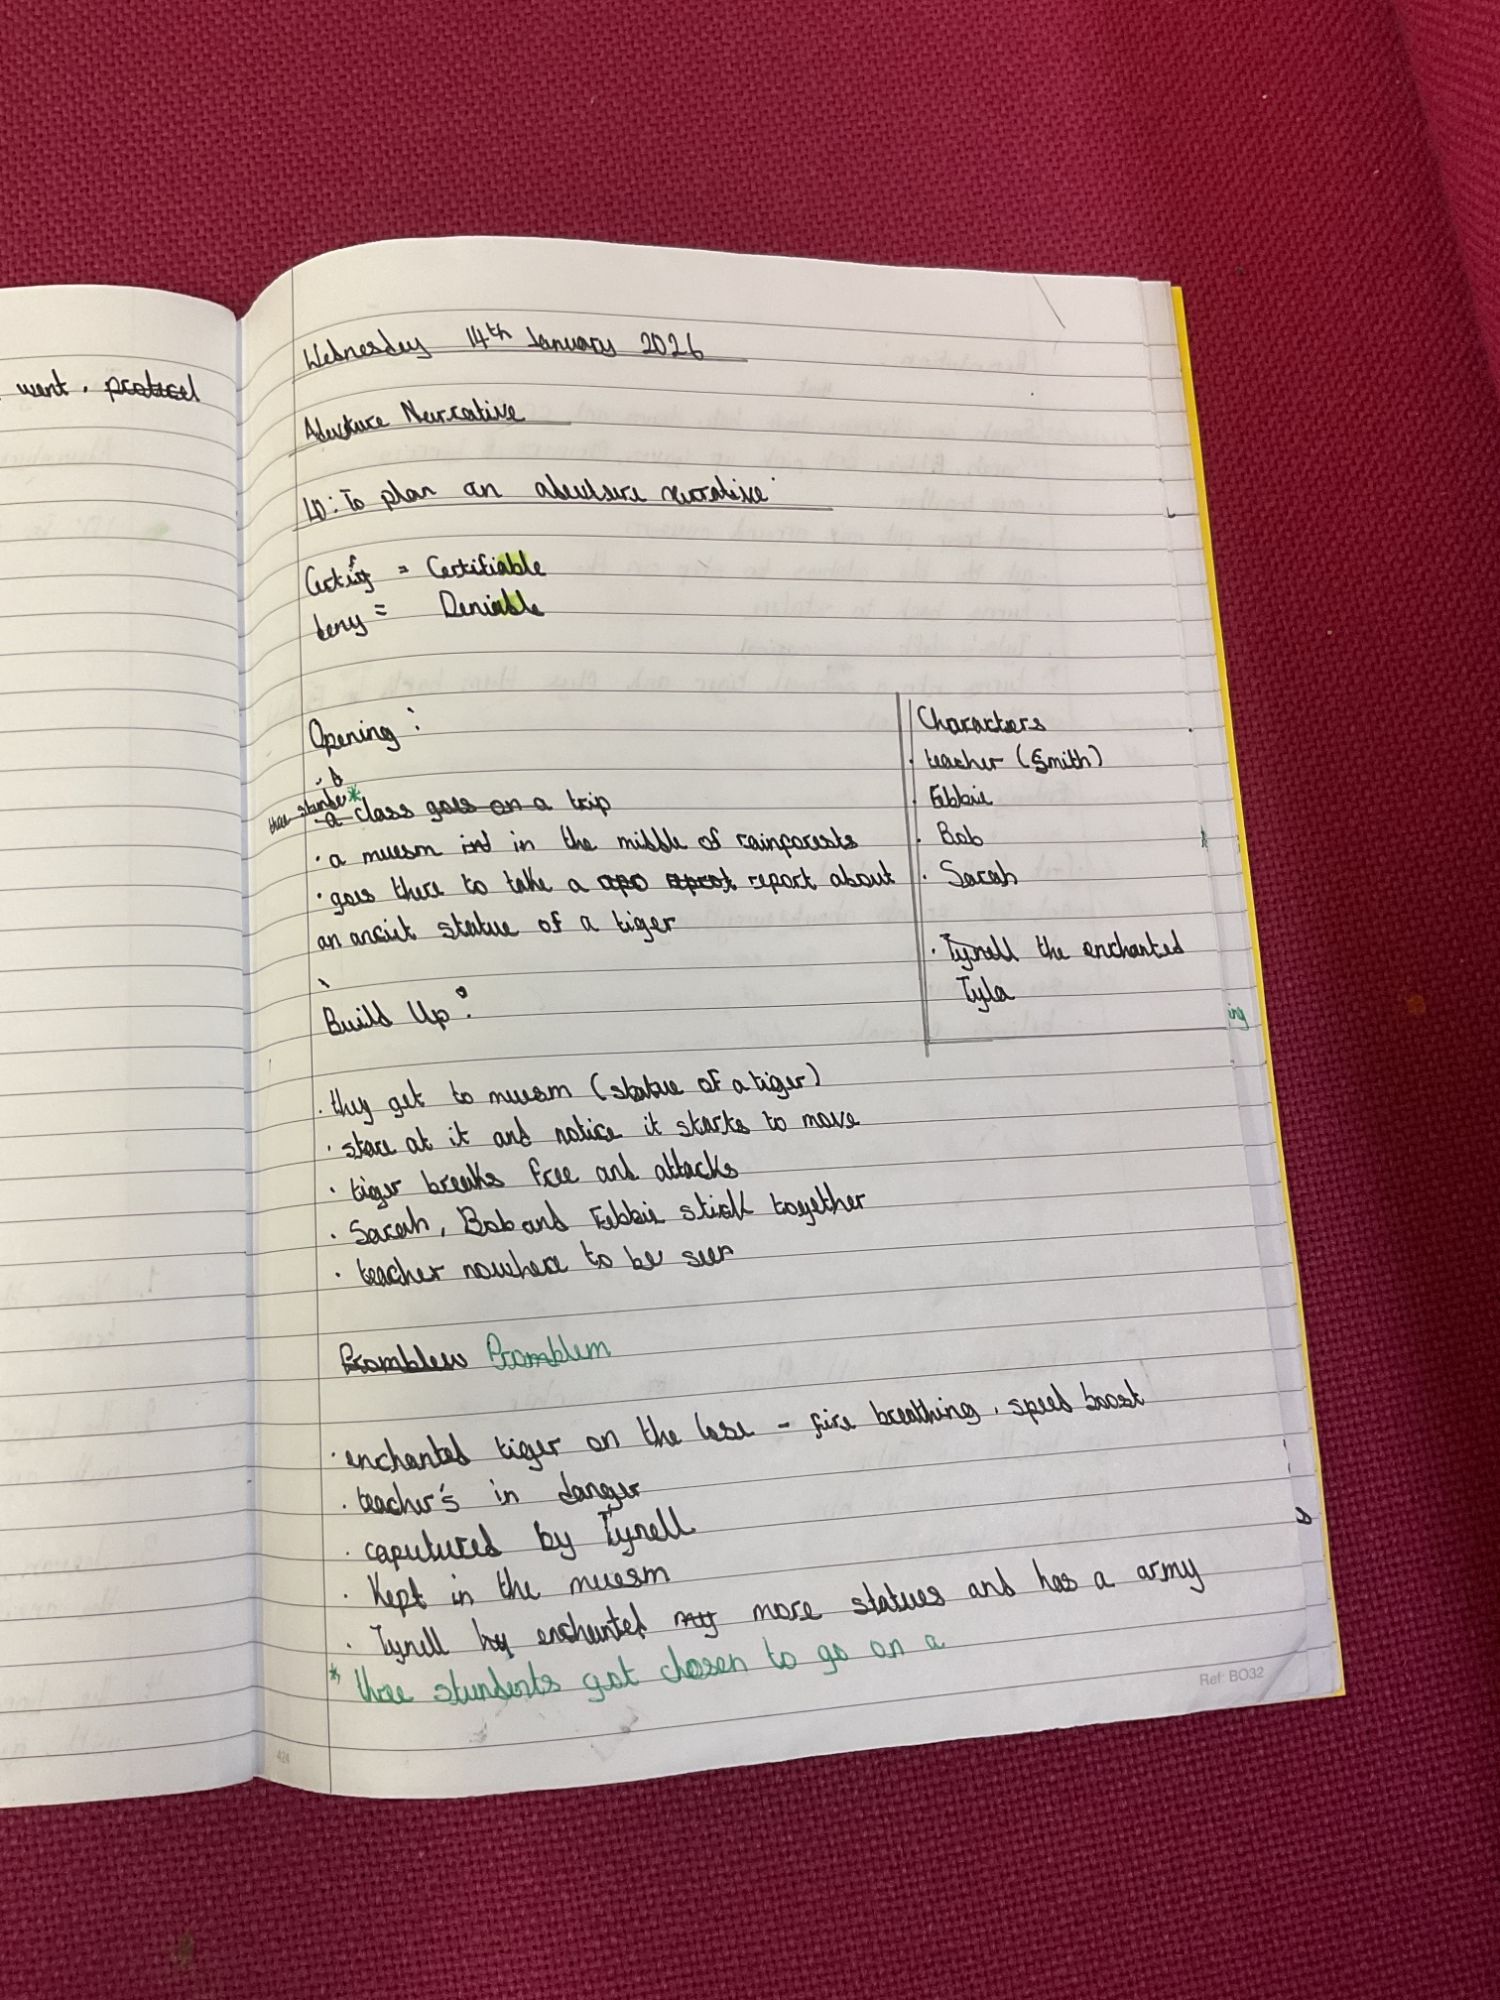 went. protocol
Wednesday 14th January 2026
Adventure Narrative
LO: To plan an adventure narrative
Certify = Certifiable
deny = Deniable
Opening:
three stunde*
a class goes on a trip
· a muesm in the middle of rainforests
· goes there to take a report about
an ancient statue of a tiger
Characters
· teacher (Smith)
· Febbie
· Bob
· Sarah
· Tyrell the enchanted
Tyla
Build Up:
· they get to muesm (statue of a tiger)
· stare at it and notice it starts to move
· tiger breaks free and attacks
· Sarah, Bob and Febbie stick together
· teacher nowhere to be seen
ing
Promblew Promblem
· enchanted tiger on the lose - fire breathing, speed boost
· teacher's in danger
· caputured by Tyrell
· Kept in the muesm
· Tyrell enchanted more statues and has a army
* three stundents got chosen to go on a
Ref: BO32
424